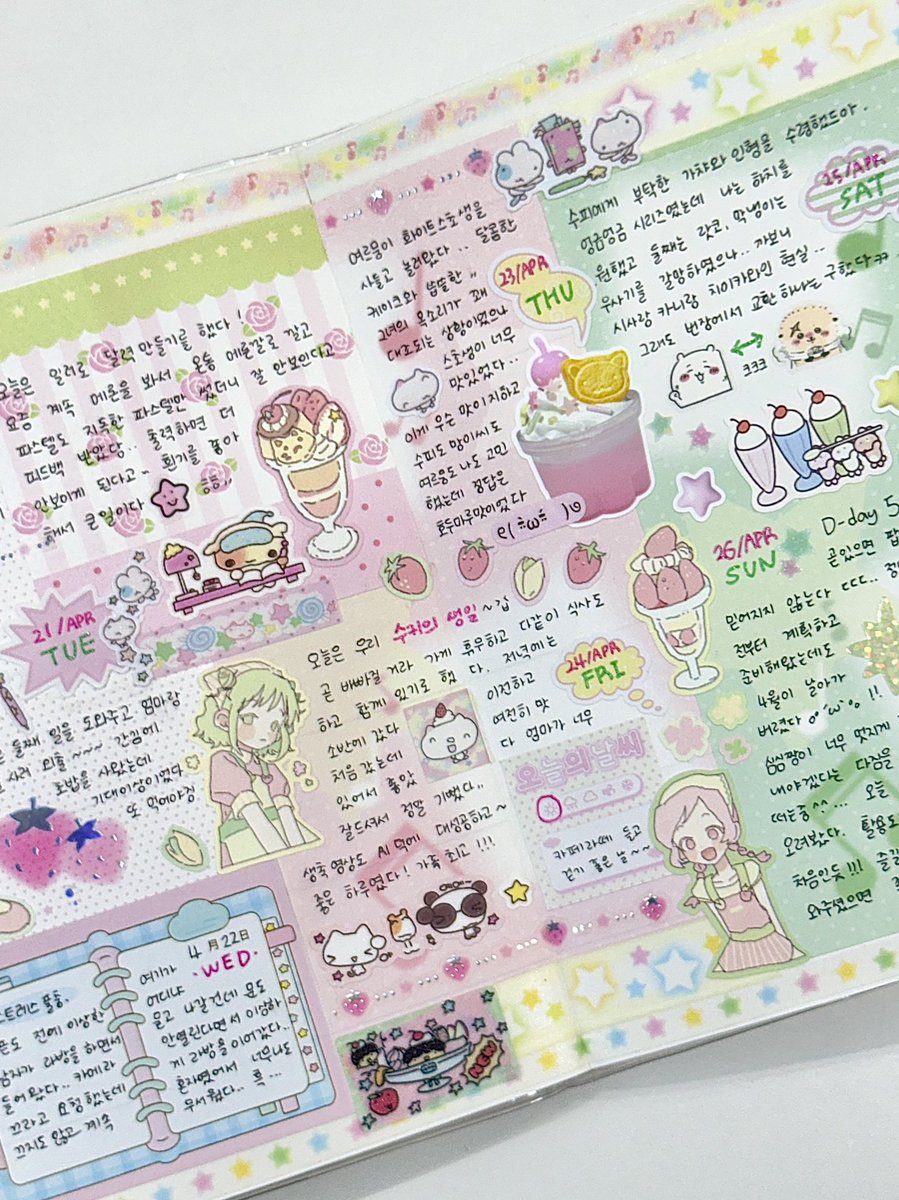 오늘은 일러로 달력만들기를 했다!
요즘 계속 메론을 봐서 온통 메론깔로 깔고
파스텔도 지독한 파스텔만 썼더니 잘 안보인다고
피드백 받았당.. 출력하면 더
안보이게 된다고~ 흰기를 좋아
해서 큰일이다 흠흠,,
21/APR
TUE
둘째 일을 도와주고 엄마랑
사러 외출~~~ 간김에
초밥을 사왔는데
기대이상이였다
또 먹어야징
4月22日
WED
스트레스 풀충.
전에 이상한
남자가 라방을 하면서
들어왔다.. 카메라
끄라고 요청했는데
끄지도 않고 계속
여기가
어디냐
묻고 나갈건데 문도
안열린다면서 이상하
게 라방을 이어갔다..
혼자였어서 너무나도
무서웠다.. 흑...
여르몽이 화이트스초생을
사들고 놀러왔다.. 달콤한
케이크와 씁쓸한"
그녀의 목소리가 꽤
대조되는 상황이였으나
스초생이 너무
맛있었다..
이게 무슨 맛이지하고
수피도 많이씨도
여르몽도 나도 고민
했는데 정답은
호두마루맛이였다
23/APR
THU
오늘은 우리 수키의 생일~갑
곧 바빠질 거라 가게 휴무하고 다같이 식사도
하고 함께 있기로 했다. 저녁에는
소반에 갔다
처음 갔는데
있어서 좋았
이전하고
여전히 맛
다 엄마가 너무
잘드셔서 정말 기뻤다,,
생축 영상도 AI 덕에 대성공하고~
좋은 하루였다! 가족 최고!!!
24/APR
FRI
오늘의날씨
카페라떼 들고
걷기 좋은 날~~
NEW
수피에게 부탁한 가챠와 인형을 수령했드아.
엉금엉금 시리즈였는데 나는 하치를
원했고 둘째는 랏코, 막냉이는
우사기를 갈망하였으나.. 까보니
시사랑 카니랑 치이카와인 현실..
그래도 번장에서 교환 하나는 구했다ㅋㅋ
ㅋㅋㅋ
25/APR
SAT
26/APR
SUN
D-day 5
곧있으면 팝
믿어지지 않는다 ㄷㄷㄷ..
전부터 계획하고
준비해왔는데도
4월이 날아가
버렸다 !!
심심팡이 너무 멋지게
내야겠다는 다짐을
떠는중^^... 오늘
오려봤다. 활용도
처음인듯!!! 즐길
와주셨으면